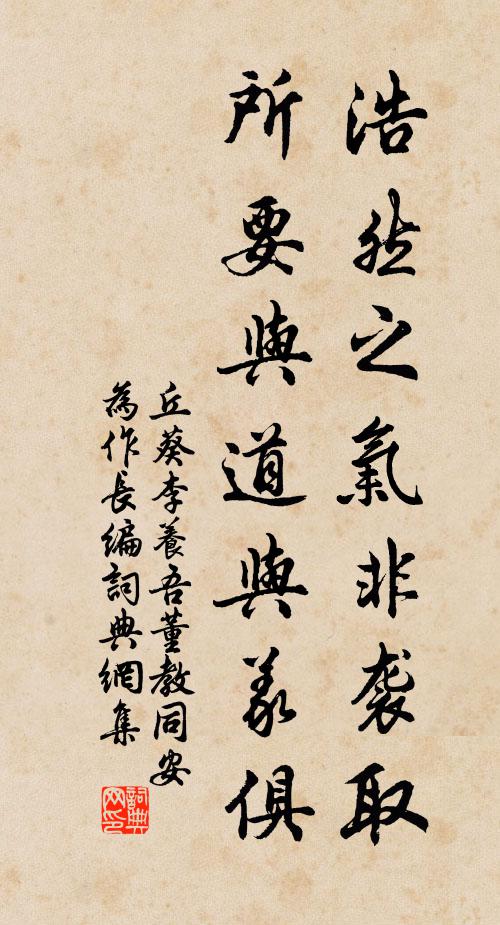 浩然之氣非襲取
所要與道與義俱
丘葵李養吾董教同安
為作長編詞典網集
詞典網印